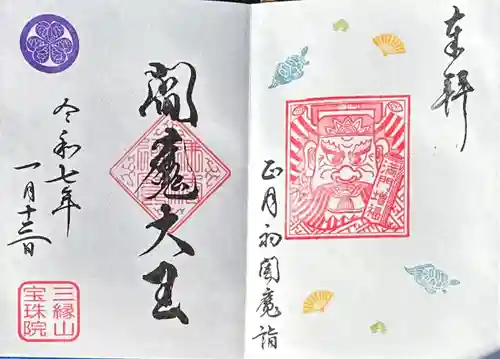 奉拝
正月初閻魔詣
満門増福
閻魔大王
令和七年
一月十三日
三縁山
宝珠院